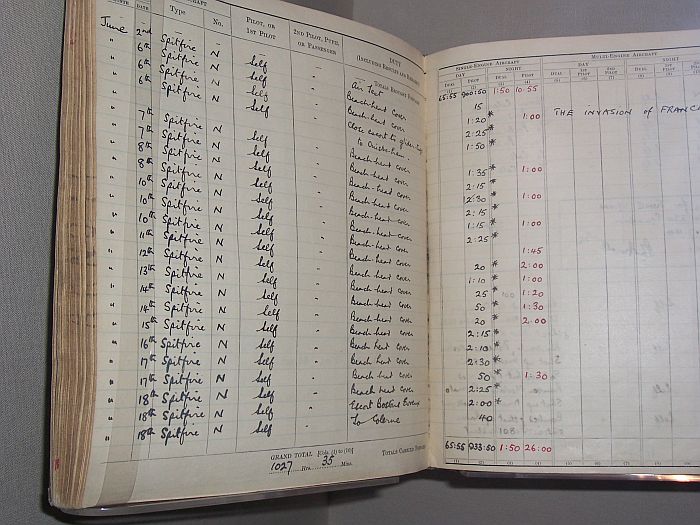 MONTH DATE AIRCRAFT Type No. PILOT, OR 1ST PILOT 2ND PILOT, PUPIL OR PASSENGER DUTY (INCLUDING RESULTS AND REMARKS)
SINGLE-ENGINE AIRCRAFT MULTI-ENGINE AIRCRAFT
DAY NIGHT DAY NIGHT
DUAL PILOT DUAL PILOT DUAL 1ST PILOT 2ND PILOT DUAL 1ST PILOT
(1) (2) (3) (4) (5) (6) (7) (8) (9)
TOTALS BROUGHT FORWARD 65:55 900:50 1:50 10:55
June 2nd Spitfire - Self - Air Test 15
" 6th Spitfire N Self - Beach-head cover 1:20 * 1:00 THE INVASION of FRANC
" 6th Spitfire N Self - Beach-head cover 2:25 *
" 6th Spitfire N Self - Close escort to glider tugs 1:50 *
" 7th Spitfire N Self - Beach-head cover 1:35 * 1:00
" 7th Spitfire N Self - Beach-head cover 2:15 *
" 8th Spitfire N Self - Beach-head cover 2:30 * 1:00
" 8th Spitfire N Self - Beach-head cover 2:15 *
" 10th Spitfire N Self - Beach-head cover 1:15 * 1:00
" 10th Spitfire N Self - Beach-head cover 2:25 *
" 10th Spitfire N Self - Beach-head cover 1:45
" 11th Spitfire N Self - Beach-head cover 20 * 2:00
" 12th Spitfire N Self - Beach-head cover 1:10 * 1:00
" 13th Spitfire N Self - Beach-head cover 25 * 1:20
" 14th Spitfire N Self - Beach-head cover 50 * 1:30
" 14th Spitfire N Self - Beach-head cover 20 * 2:00
" 15th Spitfire N Self - Beach-head cover 2:15 *
" 16th Spitfire N Self - Beach head cover 2:10 *
" 17th Spitfire N Self - Beach-head cover 2:30 *
" 17th Spitfire N Self - Beach head cover 50 * 1:30
" 18th Spitfire N Self - Beach head cover 2:25 *
" 18th Spitfire N Self - Escort 2:00 *
" 18th Spitfire N Self - To Colerne 40
GRAND TOTAL [Cols. (1) to (10)] 1027 Hrs. 35 Mins. TOTALS CARRIED FORWARD 65:55 933:50 1:50 26:00
(1) (2) (3) (4) (5) (6) (7) (8) (9)